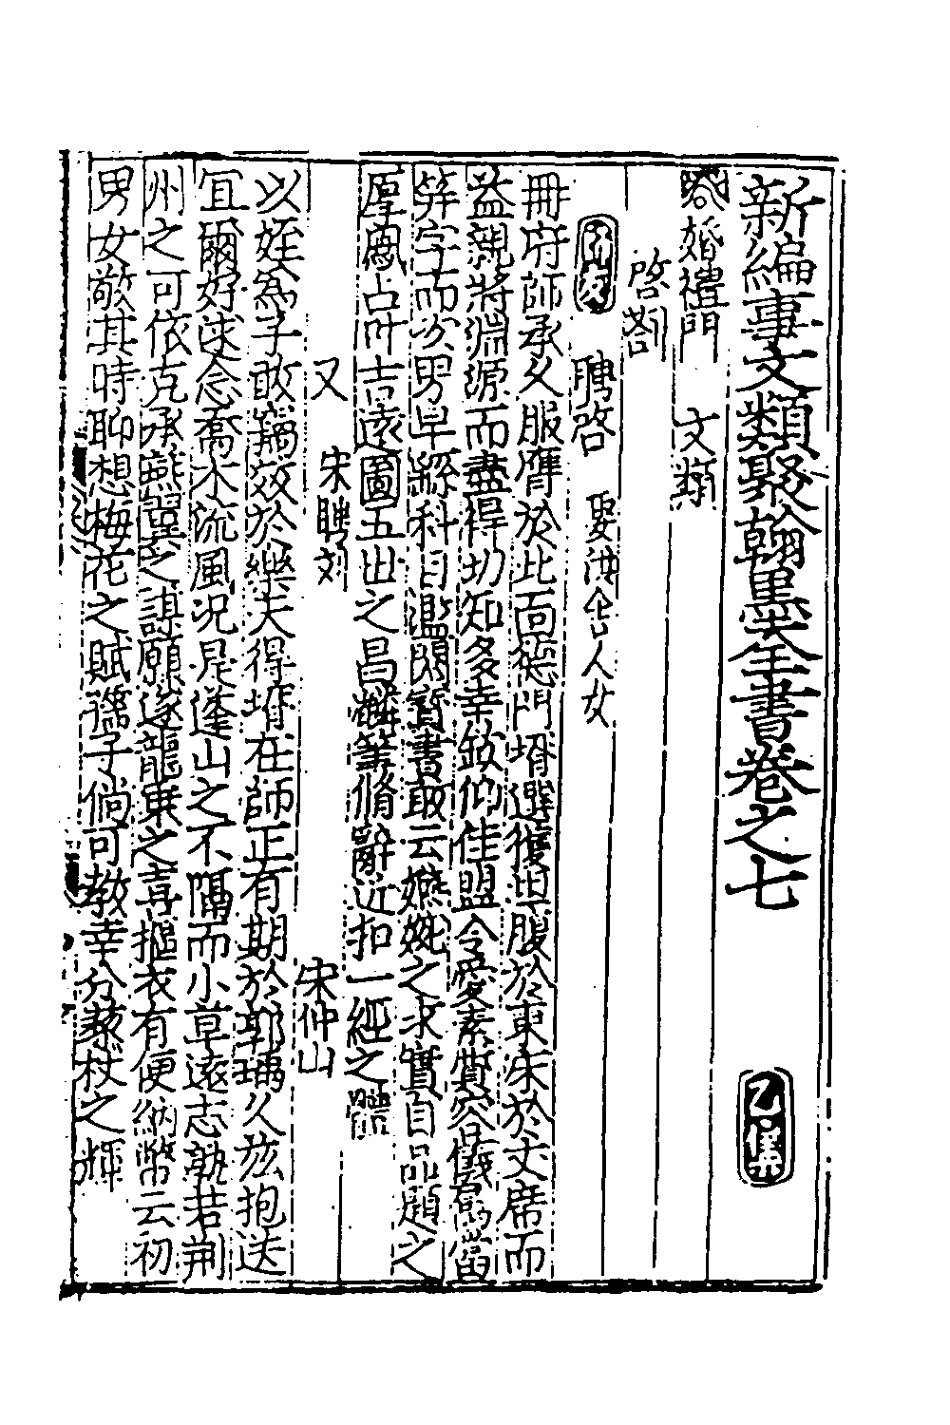 新編事文類聚翰墨全書卷之七 乙集
婚禮門 文類
啓劄
師友 聘啓 娶洪舍人女
冊府師承久服膺於此面德門壻選獲坦腹於東床於丈席而
益親將淵源而盡得切知多幸欽仰佳盟令愛素質容儀富
笄字而次男早綴科目濫閱寶書敢云嬿婉之求實自品題之
厚鳳占叶吉遠圖五世之昌麟筆脩辭近扣一經之醴
又 宋聘刘 宋仲山
以姪為子敢竊效於樂天得壻在師正有期於郭瑀久玆抱送
宜爾好逑念喬木流風況是蓬山之不隔而小草遠志孰若荆
州之可依克承燕翼之謀願遂龍乗之喜摳衣有便納幣云初
男女敬其時聊想梅花之賦孺子倘可教幸分藜杖之輝